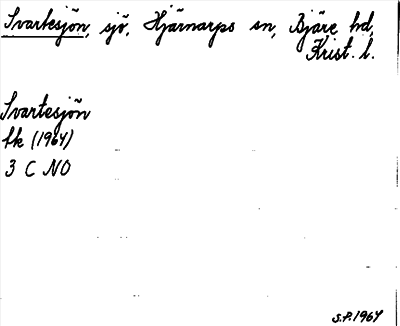 Svartesjön, sjö, Hjärnarps sn, Bjäre hd,
Krist. l.
Svartesjön
fk (1964)
3 C NO
S.P. 1964